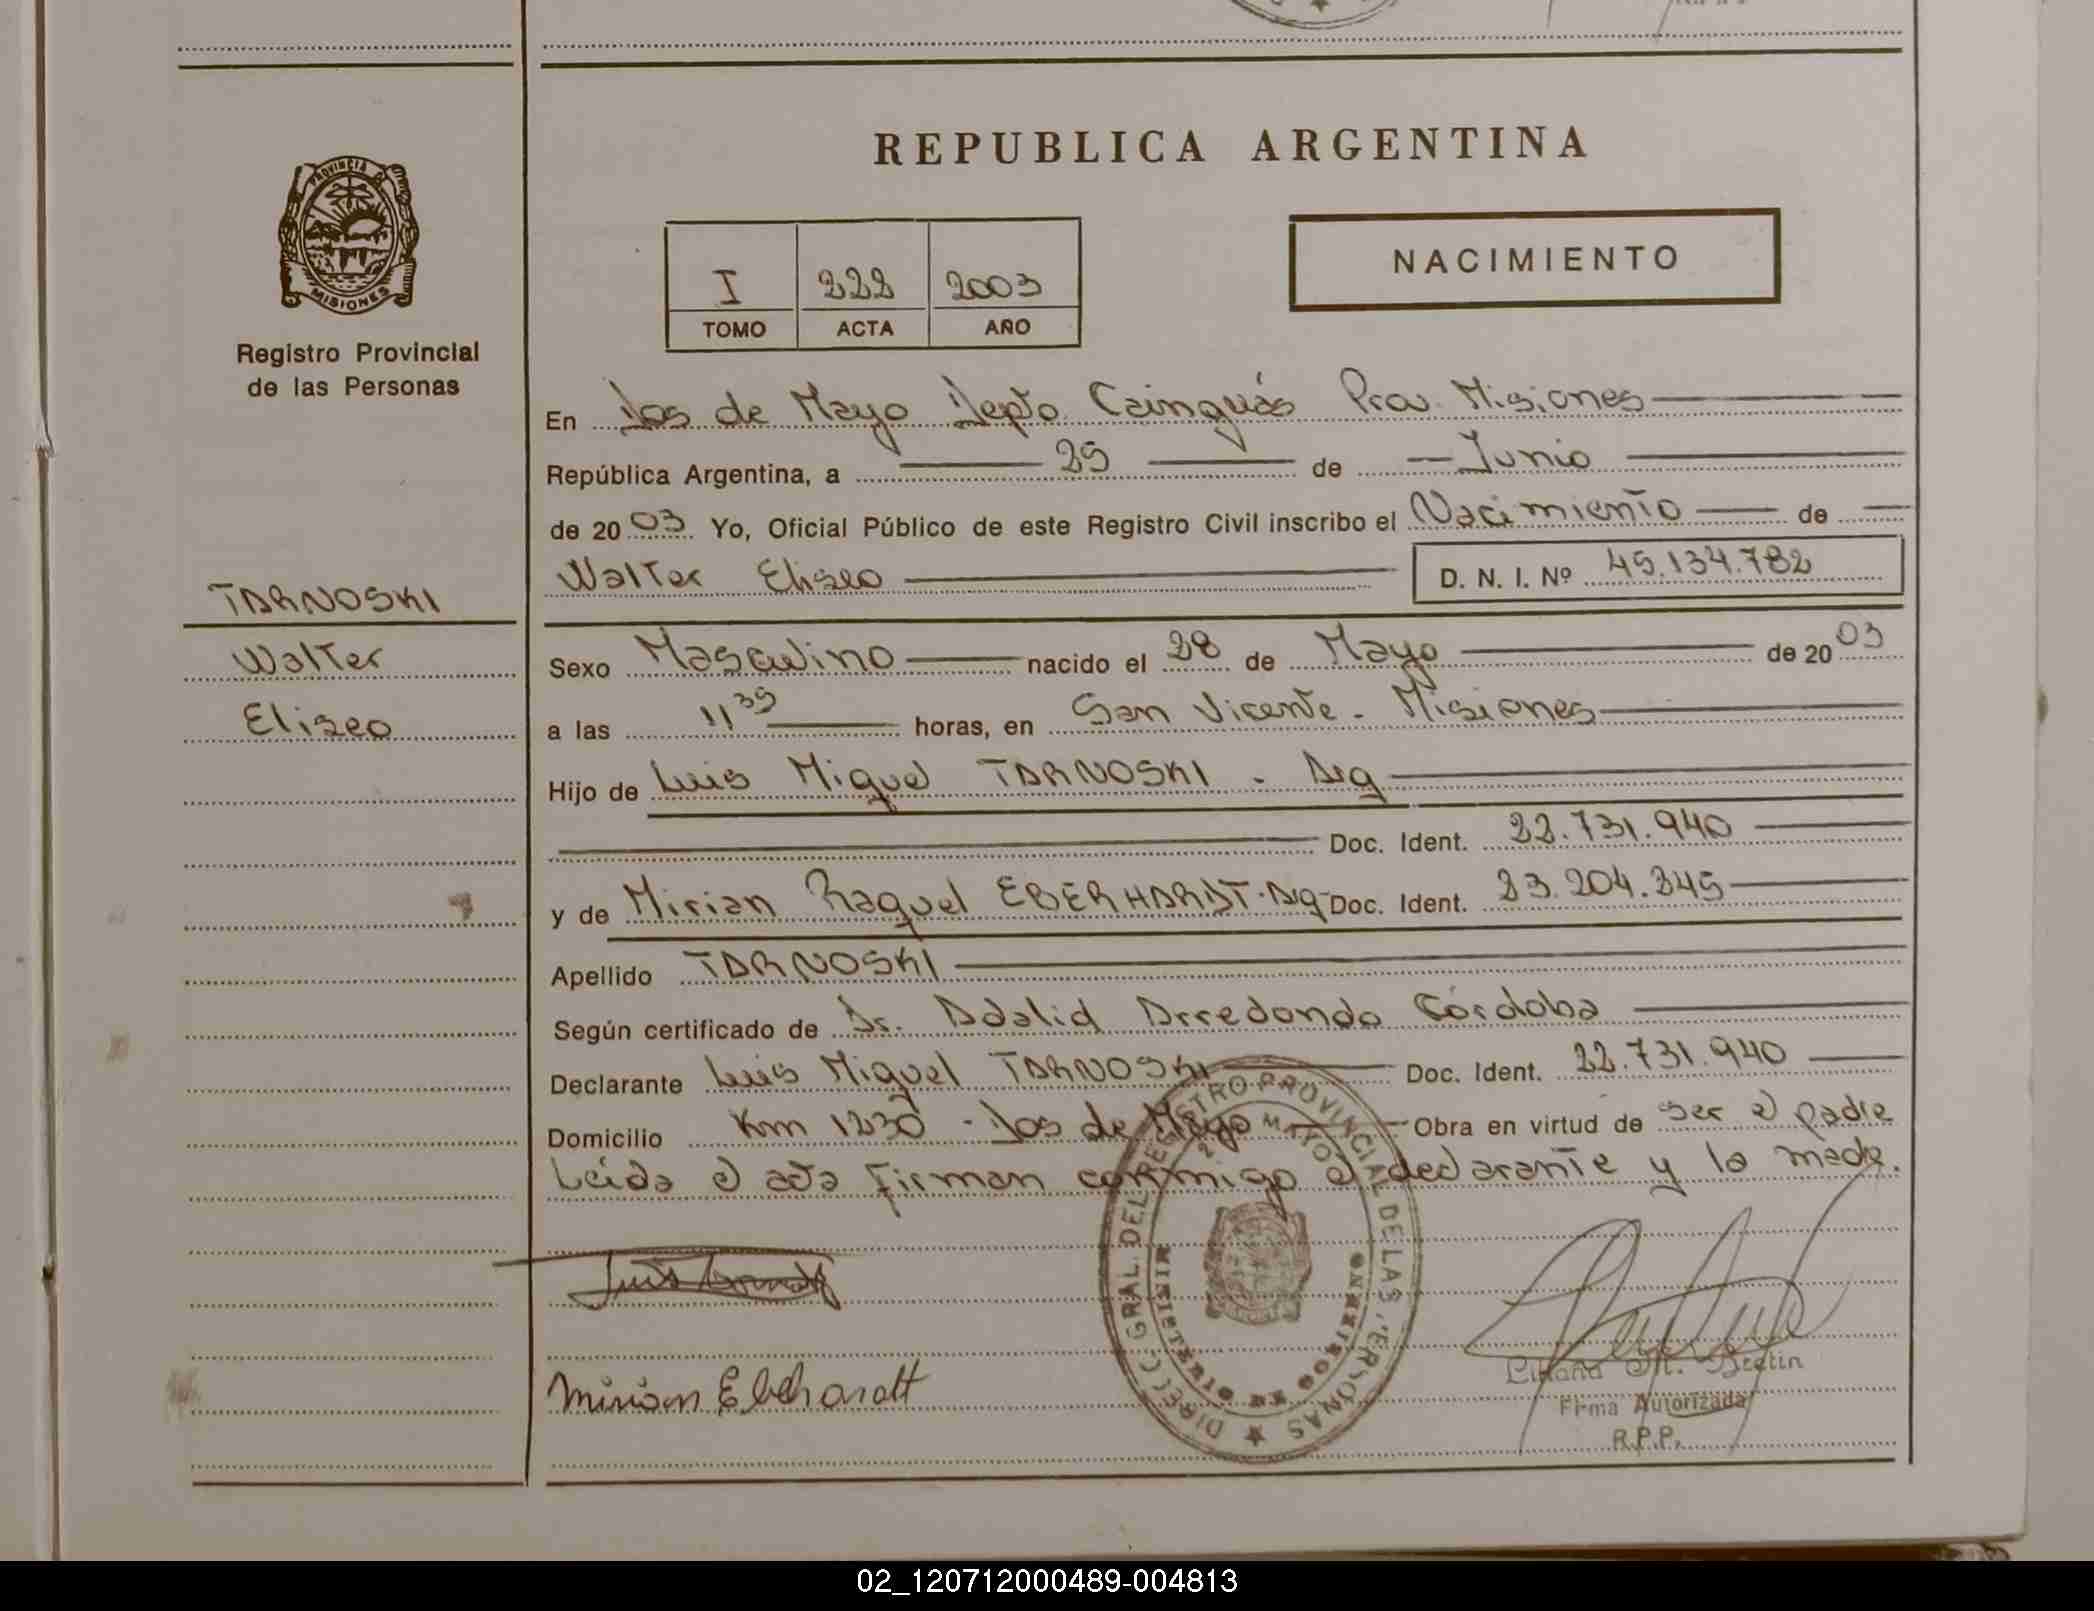 REPUBLICA ARGENTINA
PROVINCIA DE
MISIONES
Registro Provincial
de las Personas
I 222 2003
TOMO ACTA AÑO
NACIMIENTO
TARNOSKI
Walter
Eliseo
En Dos de Mayo Depto. Cainguás Prov. Misiones
República Argentina, a 25 de Junio
de 2003 Yo, Oficial Público de este Registro Civil inscribo el Nacimiento de
Walter Eliseo D. N. I. Nº 45.134.782
Sexo Masculino nacido el 28 de Mayo de 2003
a las 11 35 horas, en San Vicente - Misiones
Hijo de Luis Miguel TARNOSKI - Arg
Doc. Ident. 22.731.940
y de Mirian Raquel EBERHARDT - Arg Doc. Ident. 23.204.345
Apellido TARNOSKI
Según certificado de Dr. Adalid Arredondo Córdoba
Declarante Luis Miguel TARNOSKI Doc. Ident. 22.731.940
Domicilio Km 1230 - Dos de Mayo Obra en virtud de ser el padre
Leída el acta firman conmigo el declarante y la madre.
DIREC. GRAL. DEL REGISTRO PROVINCIAL DE LAS PERSONAS
2 MAYO
MINISTERIO DE GOBIERNO
Luis
Mirian Eberhardt
Firma Autorizada
R.P.P.
02_120712000489-004813